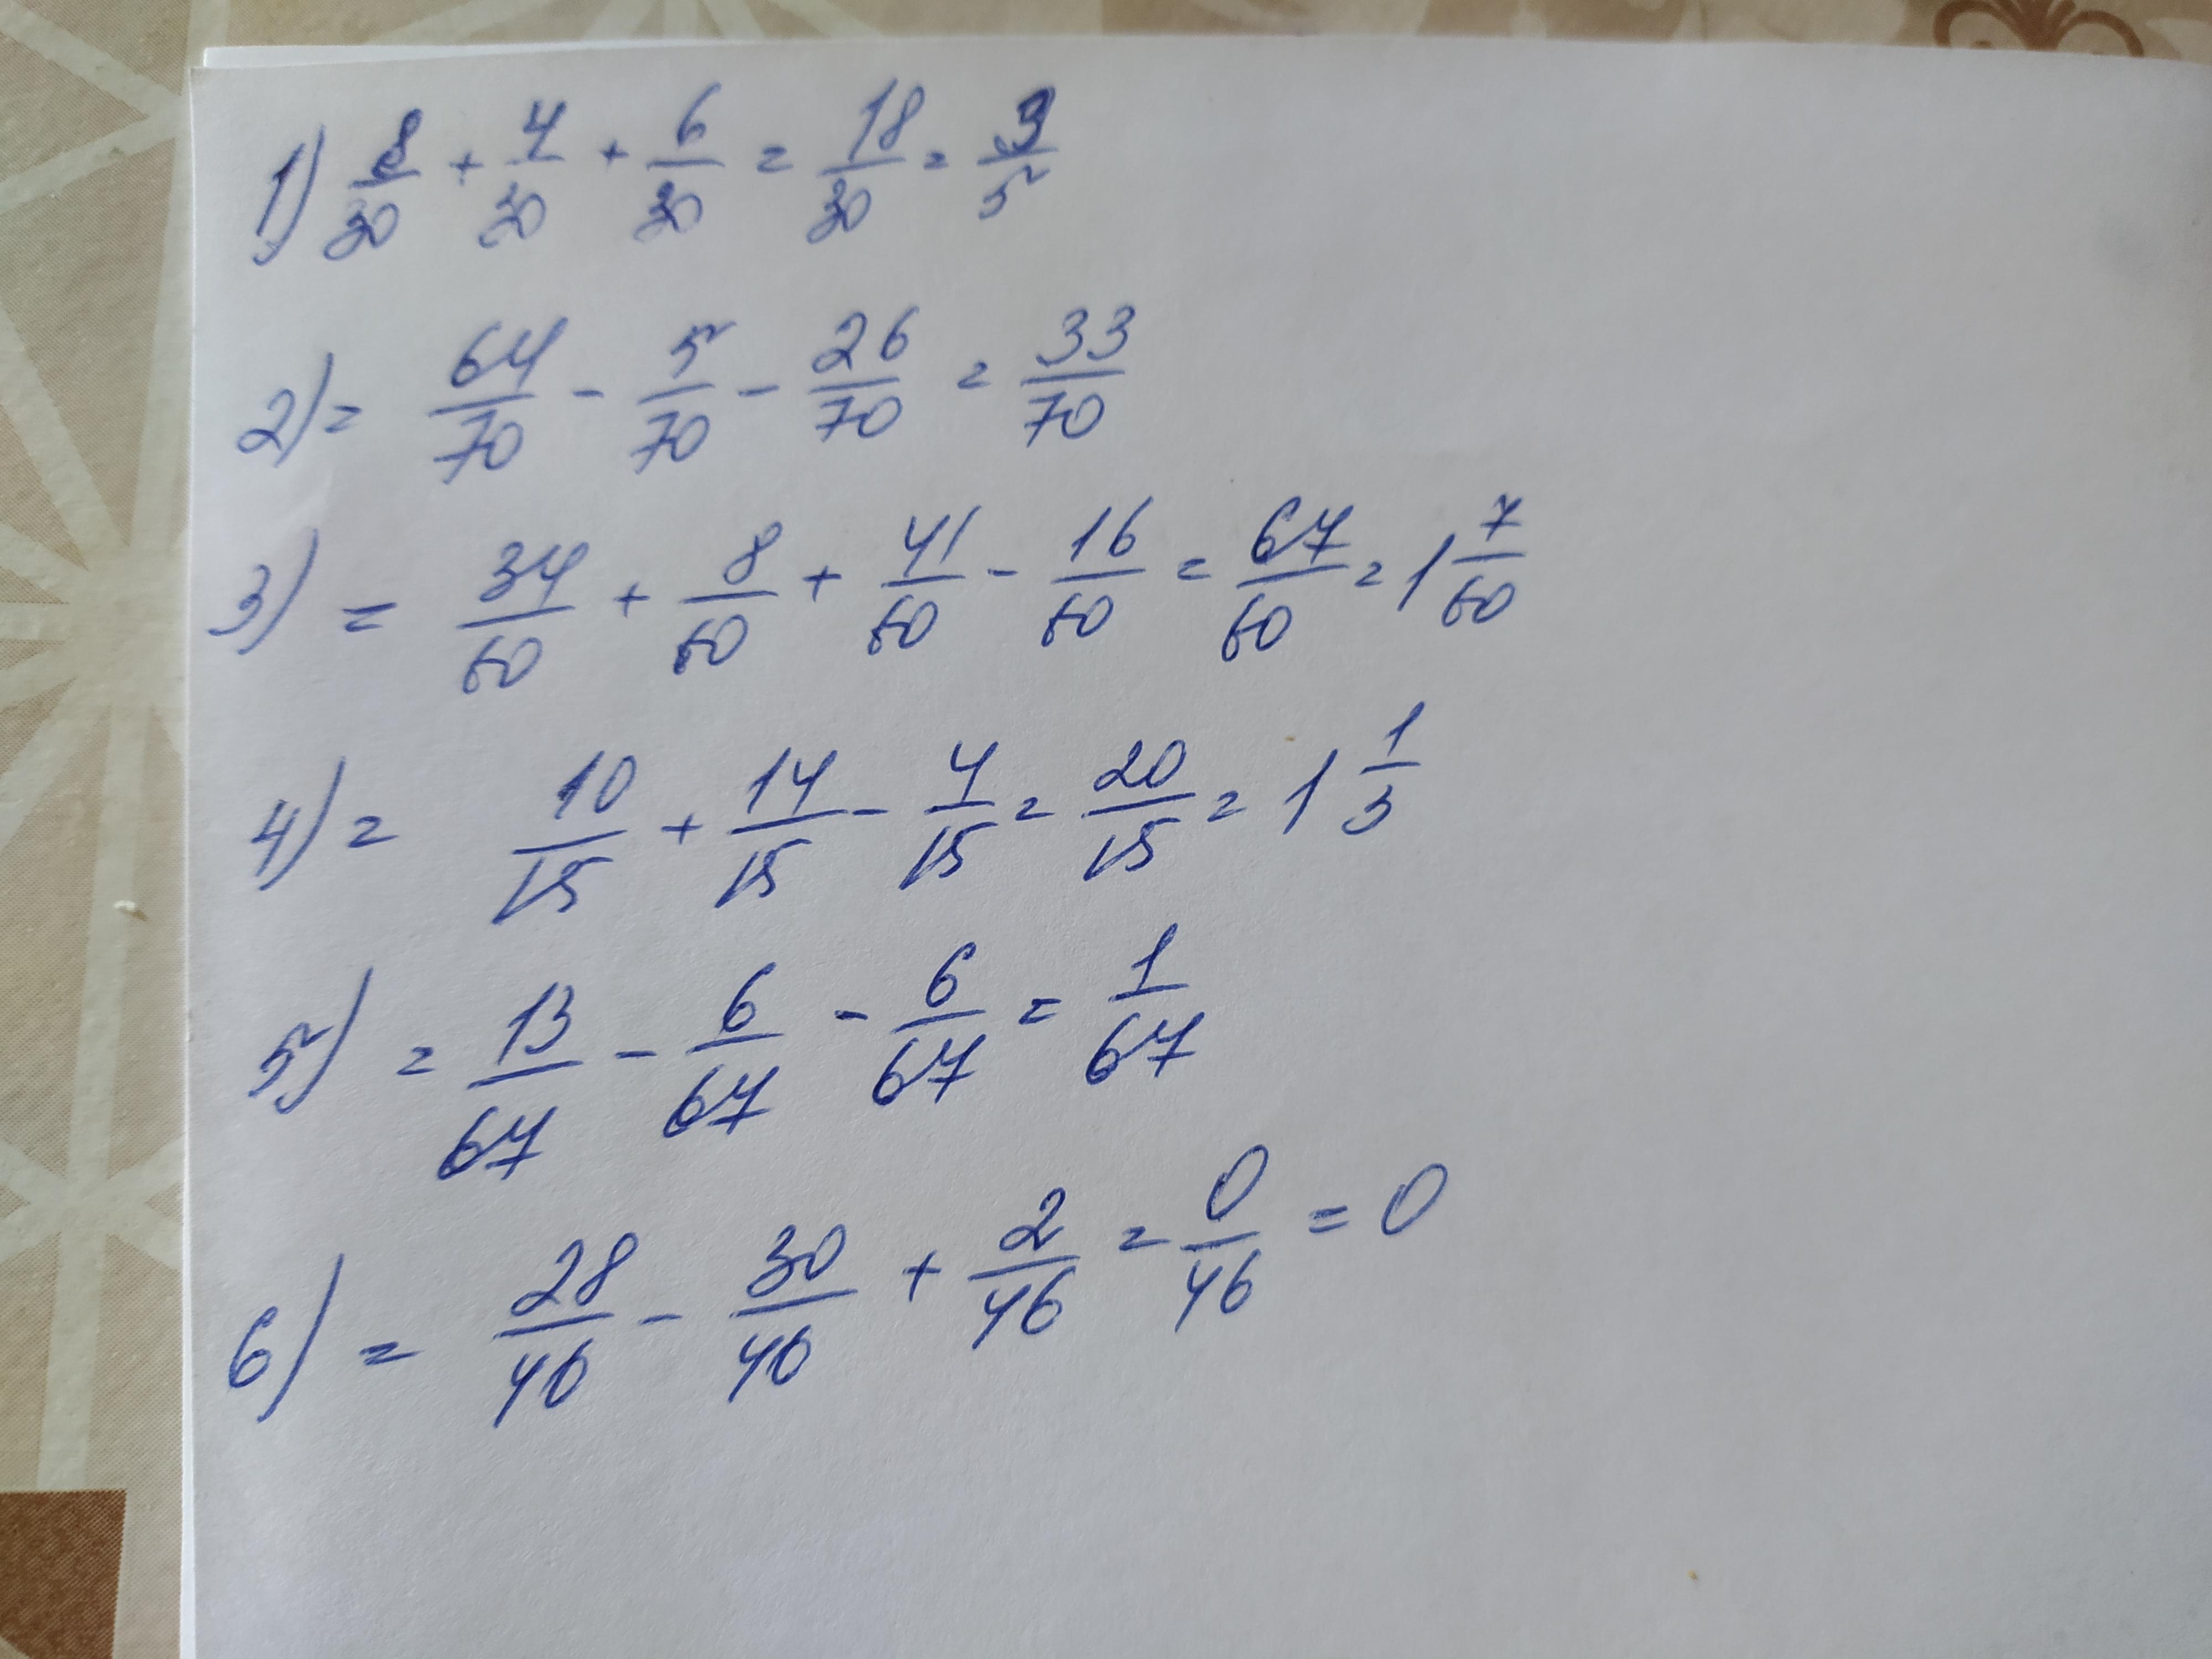 1) 8/30 + 4/30 + 6/30 = 18/30 = 3/5
2) = 64/70 - 5/70 - 26/70 = 33/70
3) = 34/60 + 8/60 + 41/60 - 16/60 = 67/60 = 1 7/60
4) = 10/15 + 14/15 - 4/15 = 20/15 = 1 1/3
5) = 13/67 - 6/67 - 6/67 = 1/67
6) = 28/46 - 30/46 + 2/46 = 0/46 = 0